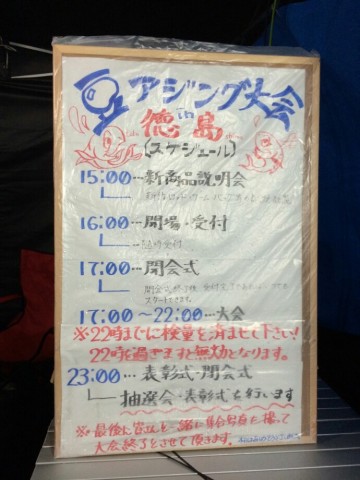 アジング大会
in
徳島
(スケジュール)
15:00…新商品説明会
16:00…開場・受付
随時受付
17:00…開会式
開会式終了後
スタートできます。
17:00～22:00…大会
※22時までに検量を済ませて下さい!
22時を過ぎますと無効となります。
23:00…表彰式・閉会式
抽選会・表彰式を行います
※最後に皆さんと一緒に集合写真を撮って
大会終了とさせて頂きます。